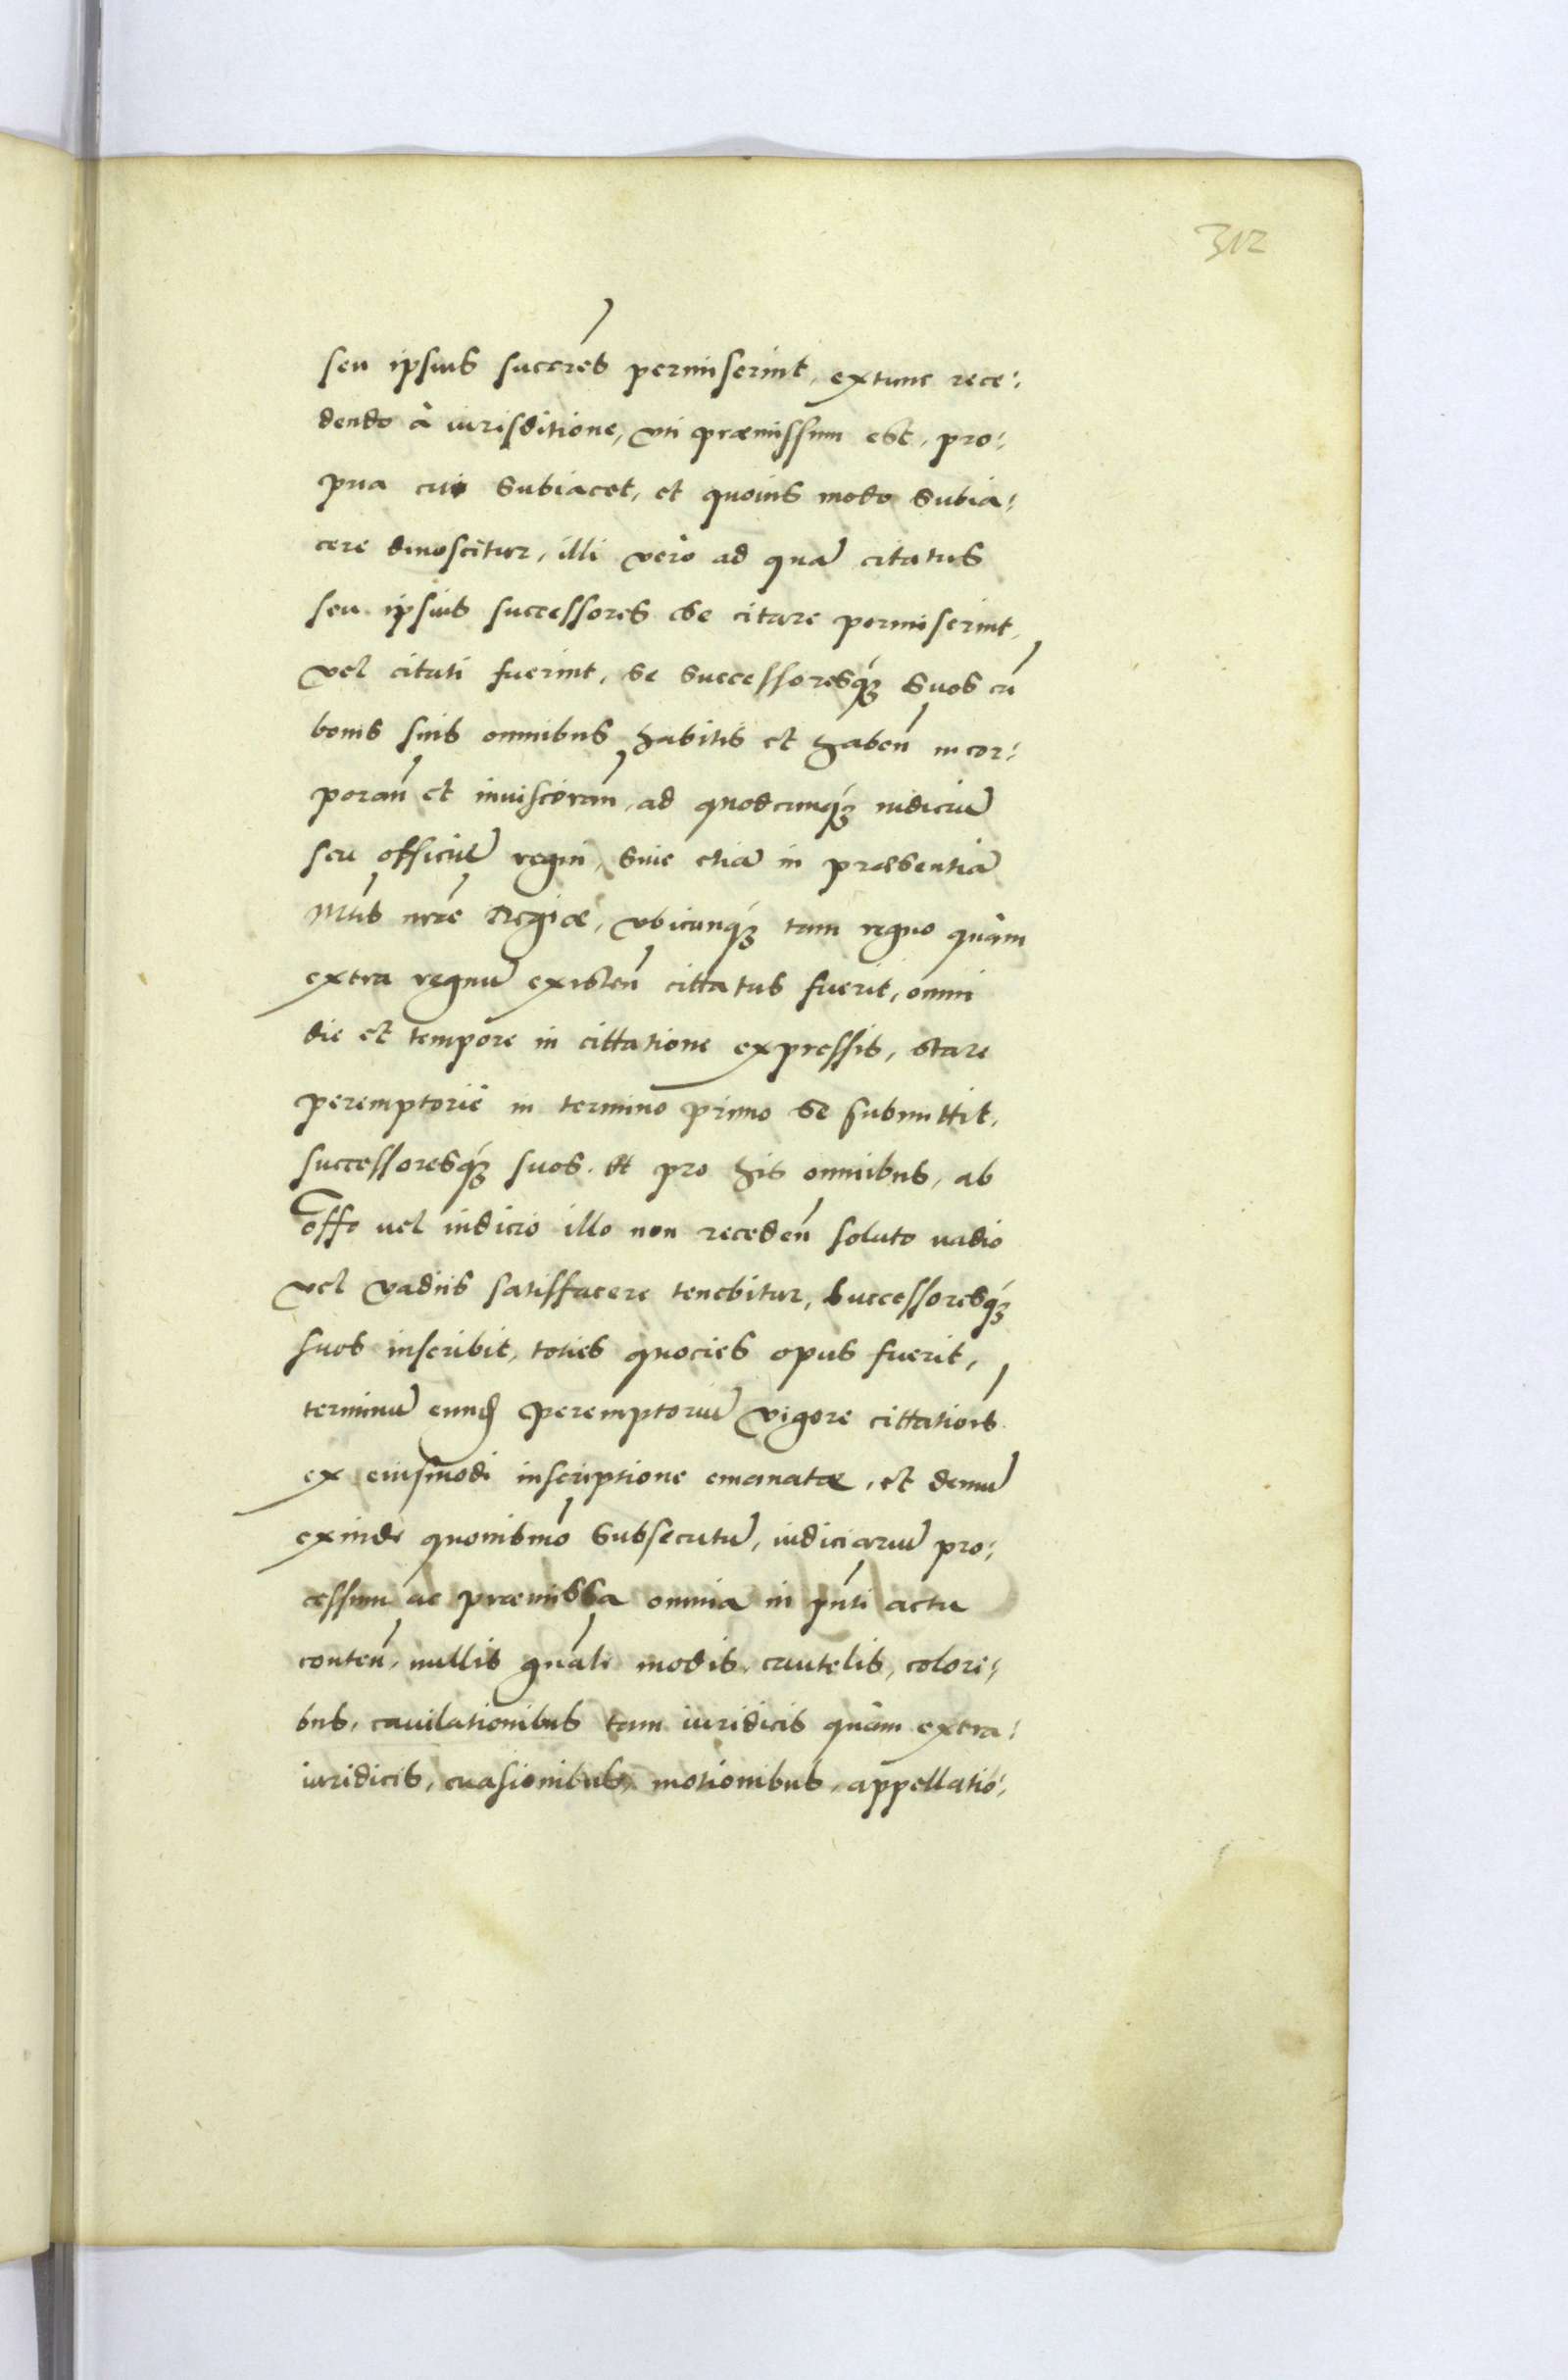 312
seu ipsius succres permiserint, extunc rece:
dendo à iurisditione, vti præmissum est, pro:
pria cui subiacet, et quouis modo subia:
cere dinoscitur, illi verò ad quā citatus
seu ipsius successores se citare permiserint,
vel citati fuerint, se successoresq́ꝫ suos cū
bonis suis omnibus habitis et haben̄ incor:
poran̄ et inuisceran̄, ad quodcunq́ꝫ iudiciū
seu officiū regni, siue etiā in præsentiā
Mtis nr̄e Regiæ, vbicunq́ꝫ tam regno quàm
extra regnū existen̄ cittatus fuerit, omni
die et tempore in cittatione expressis, stare
peremptoriè in termino primo se submittit,
successoresq́ꝫ suos. Et pro his omnibus, ab
offo uel iudicio illo non receden̄ soluto uadio
vel vadiis satisfacere tenebitur, successoresq́ꝫ
suos inscribit, toties quocies opus fuerit,
terminū eund peremptoriū vigore cittationis
ex eiusmodi inscriptione emanatæ, et demū
exinde quouismō subsecutū, iudiciariū pro:
cessum ac præmissa omnia in pn̄ti actu
conten̄, nullis gn̄ali modis, cautelis, colore:
bus, cauilationibus tam iuridicis quàm extra:
iuridicis, euasionibus, motionibus, appellatio: